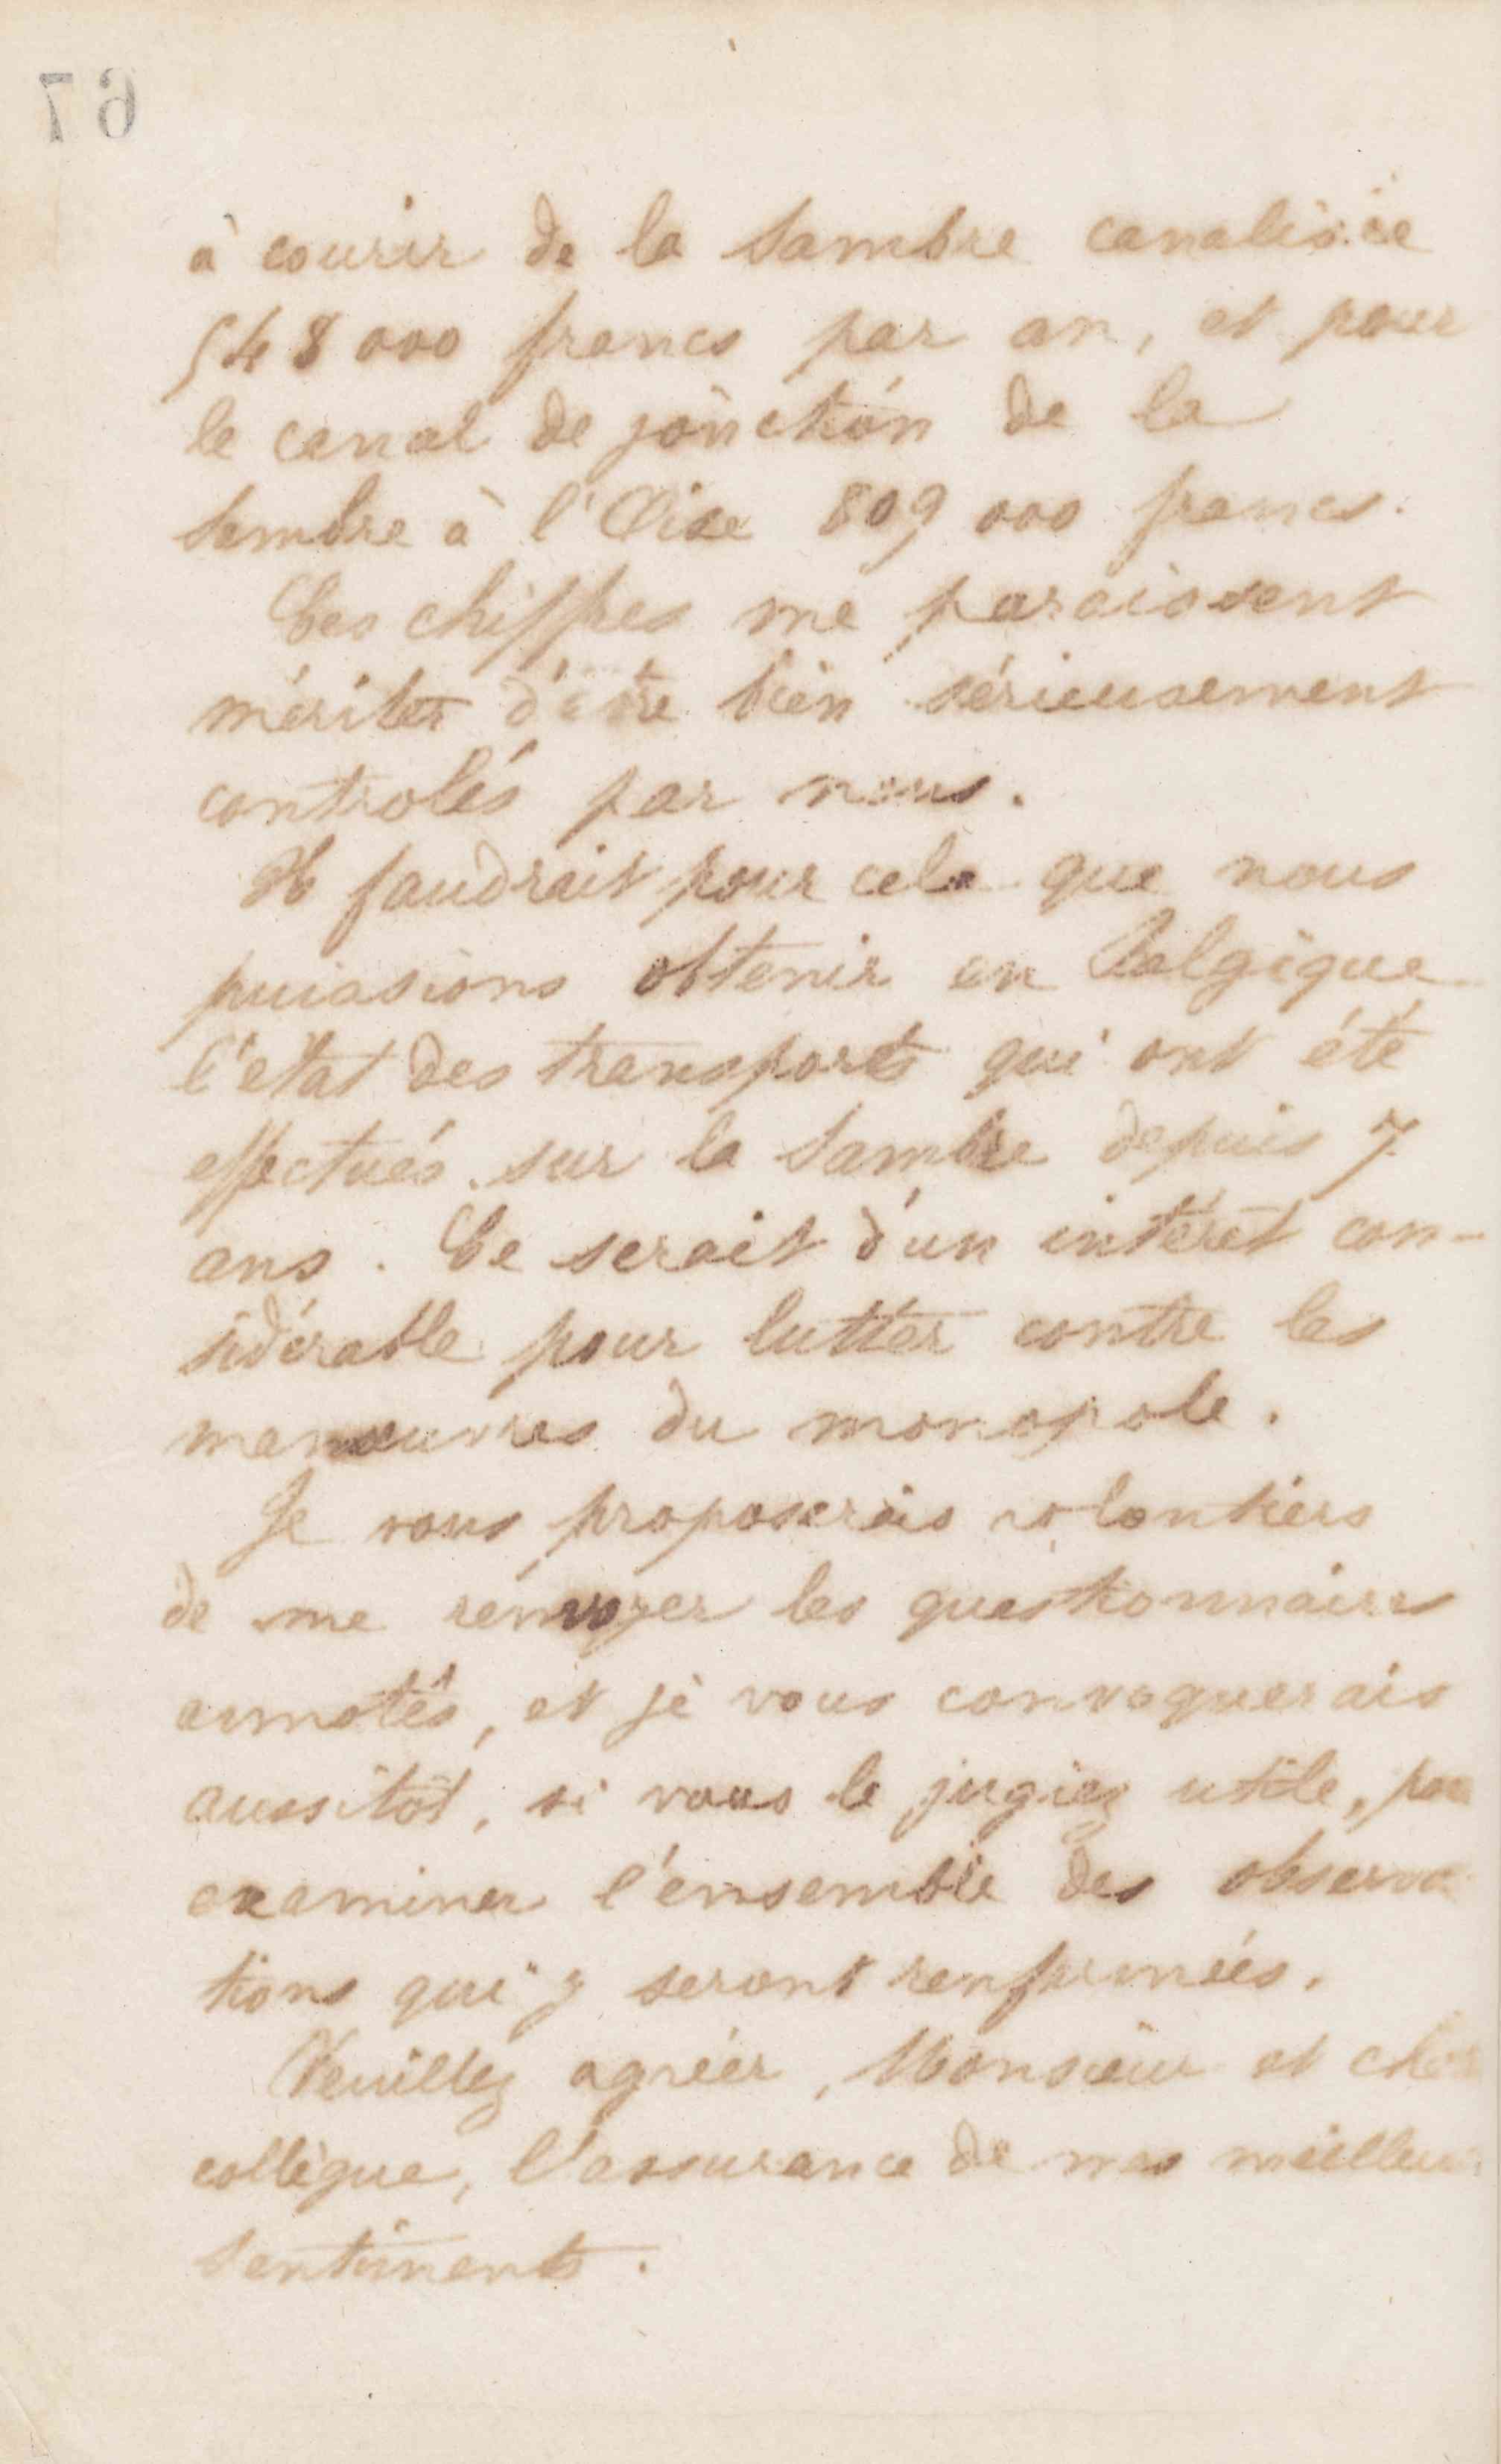 67
à courir de la Sambre canalisée
548 000 francs par an, et pour
le canal de jonction de la
Sambre à l'Oise 809 000 francs.
Ces chiffres me paraissent
mériter d'être bien sérieusement
controlés par nous.
Il faudrait pour cela que nous
puissions obtenir en Belgique
l'état des transports qui ont été
effectués sur la Sambre depuis 7
ans. Ce serait d'un intérêt con-
sidérable pour lutter contre les
manœuvres du monopole.
Je vous proposerais volontiers
de me renvoyer les questionnaires
annotés, et je vous convoquerais
aussitôt, si vous le jugiez utile, pour
examiner l'ensemble des observa
tions qui y seront renfermées.
Veuillez agréer, Monsieur et cher
collègue, l'assurance de mes meilleurs
sentiments.